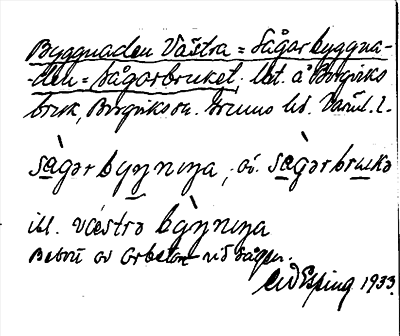 Byggnaden Västra = Sågarbyggna-
-den = Sågarbruket, lht. å Borgviks
bruk, Borgviks sn. Grums hd. Värml. l.
sàgər byŋnıŋa, o. sàgərbrukə
ill. vœstrə bỳŋnıŋa
Bebott av arbetare vid sågen.
Esping 1933.